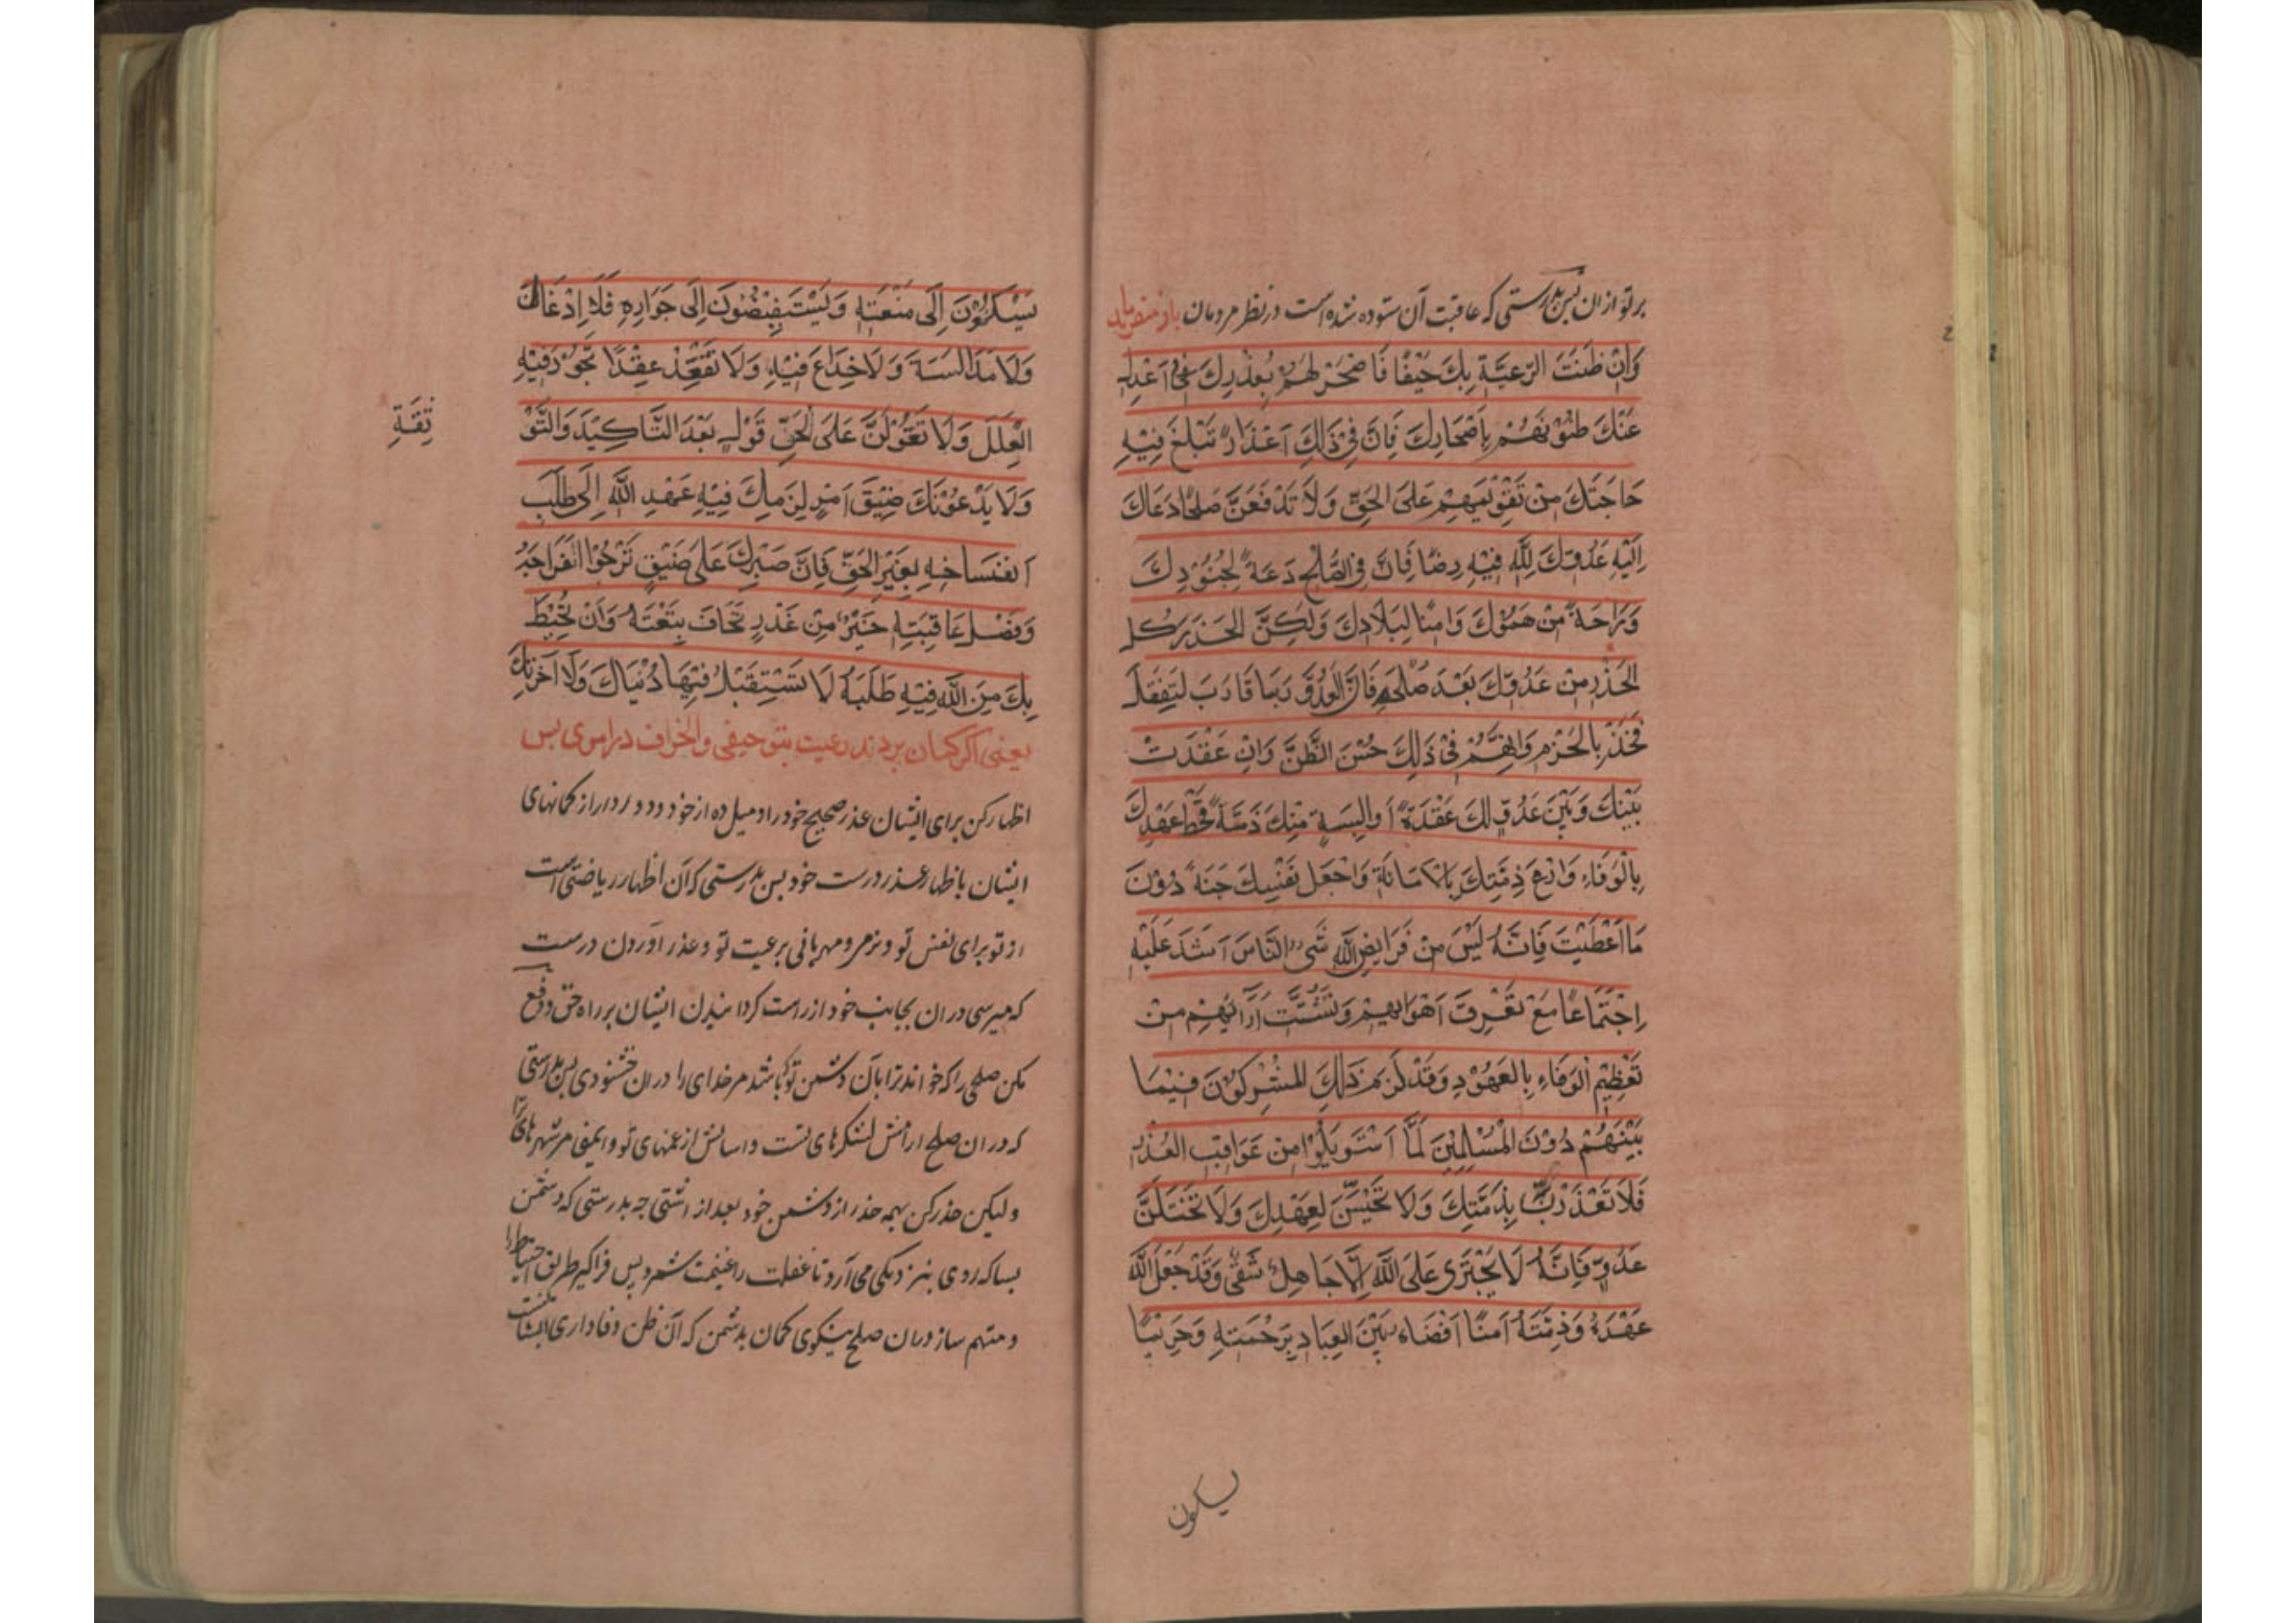 بر تو از ان پس بدرستی که عاقبت آن ستوده شده است در نظر مردمان باز میفرماید
وَاِنْ ظَنَّتَ الرَّعِيَّةِ بِكَ حَيْفًا فَاَصْحَرْ لَهُمْ بُعُذْرِكَ وَاَعْدِلْ
عَنْكَ ظُنُوْنَهُمْ بِاَصْحَارِكَ فَاِنَّ فِيْ ذَلِكَ اَعْذَارٌ تَبْلَغُ فِيْهِ
حَاجَتَكَ مِنْ تَقْوِيْمِهِمْ عَلَى الحَقِّ وَلَا تَدْفَعَنَّ صُلْحًا دَعَاكَ
اِلَيْهِ عَدُوِّكَ لِلّٰهِ فِيْهِ رِضًا فَاِنَّ فِي الصُّلْحِ دَعَةً لِجُنُوْدِكَ
وَرَاحَةً مِنْ هَمُوْمِكَ وَامْنًا لِبَلَادِكَ وَلَكِنَّ الحَذَرَ كُل
الحَذْرِ مِنْ عَدُوِّكَ بَعْدَ صُلْحِهِ فَاِنَّ العَدُوَّ رُبَمَا قَارَبَ لِيَتَغَفَّلَ
فَخُذْ بِالحَزْمِ وَاتَّهِمْ فِيْ ذَلِكَ حُسْنَ الظَّنَّ وَاِنْ عَقَدَتْ
بَيْنَكَ وَبَيْنَ عَدُوٍّ لَكَ عُقْدَةً اَوِ البِسَتِه مِنْكَ ذِمَّةً فَحُطْ عَهْدِكَ
بِالْوَفَاءِ وَارْعَ ذِمَّتِكَ بِالاَمَانَةِ وَاجْعَل نَفْسِكَ جُنَةً دُوْنَ
مَا اَعْطَيْتَ فَاِنَّهُ لَيْسَ مِنْ فَرَايِضِ اللّٰهِ شَيْءٌ النَّاسَ اَشَدَّ عَلَيْهِ
اِجْتِمَاعًا مَعَ تَفَرُّقِ اَهْوَايِهِمْ وَتَشَتُّتِ اَرَآئِهِمْ مِنْ
تَعْظِيْمِ الْوَفَاءِ بِالعَهُوْدِ وَقَدْ لَزِمَ ذَلِكَ المُشْرِكُوْنَ فِيْمَا
بَيْنَهُمْ دُوْنَ الْمُسْلِمِيْنَ لَمَّا اسْتَوْبَلُوْا مِنْ عَوَاقِبِ الغُذْرِ
فَلَا تَغْذَرْنَّ بِذِمَّتِكَ وَلَا تَخَيْسَّنَ لِعَهْدِكَ وَلَا تَخْتَلَنَّ
عَدُوِّ فَاِنَّهُ لَا يَجْتَرِي عَلَى اللّٰهِ اِلَّا جَاهِلٌ شَقِيٌّ وَقَدْ جَعَلَ اللّٰهُ
عَهْدَهُ وَذِمَّتَهُ اَمْنًا اَفْضَاهُ بَيْنَ العِبَادِ بِرَحْمَتِهِ وَحَرِيْمًا
یسکون
يَسْكُنُوْنَ اِلَى مَنْعَتِهِ وَيَسْتَفِيْضُوْنَ اِلَى جَوَارِهِ فَلَا اِدْغَالَ
وَلَا مَدَالَسَةَ وَلَا خِدَاعَ فِيْهِ وَلَا تَعْقِدْ عَقْدًا تَجُوْزُ فِيْهِ
الْعِلَلَ وَلَا تُعَوِّلَنَّ عَلَى لَحْنِ قَوْلٍ بَعْدَ التَّاكِيْدِ وَالتَّوْ
ثِقَةِ
وَلَا يَدْعُوْنَكَ ضِيْقَ اَمْرٍ لَزِمَكَ فِيْهِ عَهْدِ اللّٰهِ اِلَى طَلَبِ
اَنْفِسَاخِهِ بِغَيْرِ الحَقِّ فَاِنَّ صَبْرِكَ عَلَى ضِيْقٍ تَرْجُوْا انْفِرَاجَهُ
وَفَضْلِ عَاقِبَتِهِ خَيْرٌ مِنْ غَدْرٍ تَخَافَ تِبْعَتَهُ وَاَنْ تُحِيْطَ
بِكَ مِنَ اللّٰهِ فِيْهِ طَلَبَةٌ لَا تَسْتَقْبِلُ فِيْهَا دُنْيَاكَ وَلَا آخِرَتِكَ
یعنی اگر کمان بردند رعیت بتو حیفی وانحراف در امری پس
اظهار کن برای ایشان عذر صحیح خود را و میل ده از خود و دور دار از کمانهای
ایشان باظهار عذر درست خود پس بدرستی که آن اظهار ریاضتی است
از تو برای نفس تو و نرمی و مهربانی برعیت تو و عذر اوردن درست
که میرسی در ان بجانب خود از راست کردانیدن ایشان بر راه حق و دفع
مکن صلحی را که خواند ترا بآن دشمن تو که باشد مر خدای را در ان خشنودی پس بدرستی
که در ان صلح ارامش لشکرهای تست و اسایش از غمهای تو و ایمنی مر شهرهای ترا
ولیکن حذر کن همه حذر از دشمن خود بعد از اشتی چه بدرستی که دشمن
بسا که روی بنزدیکی می آرد تا غفلت را غنیمت شمرد پس فراکیر طریق احتیاط را
و متهم ساز در ان صلح نیکوی کمان بدشمن که آن ظن وفاداری ایشانست